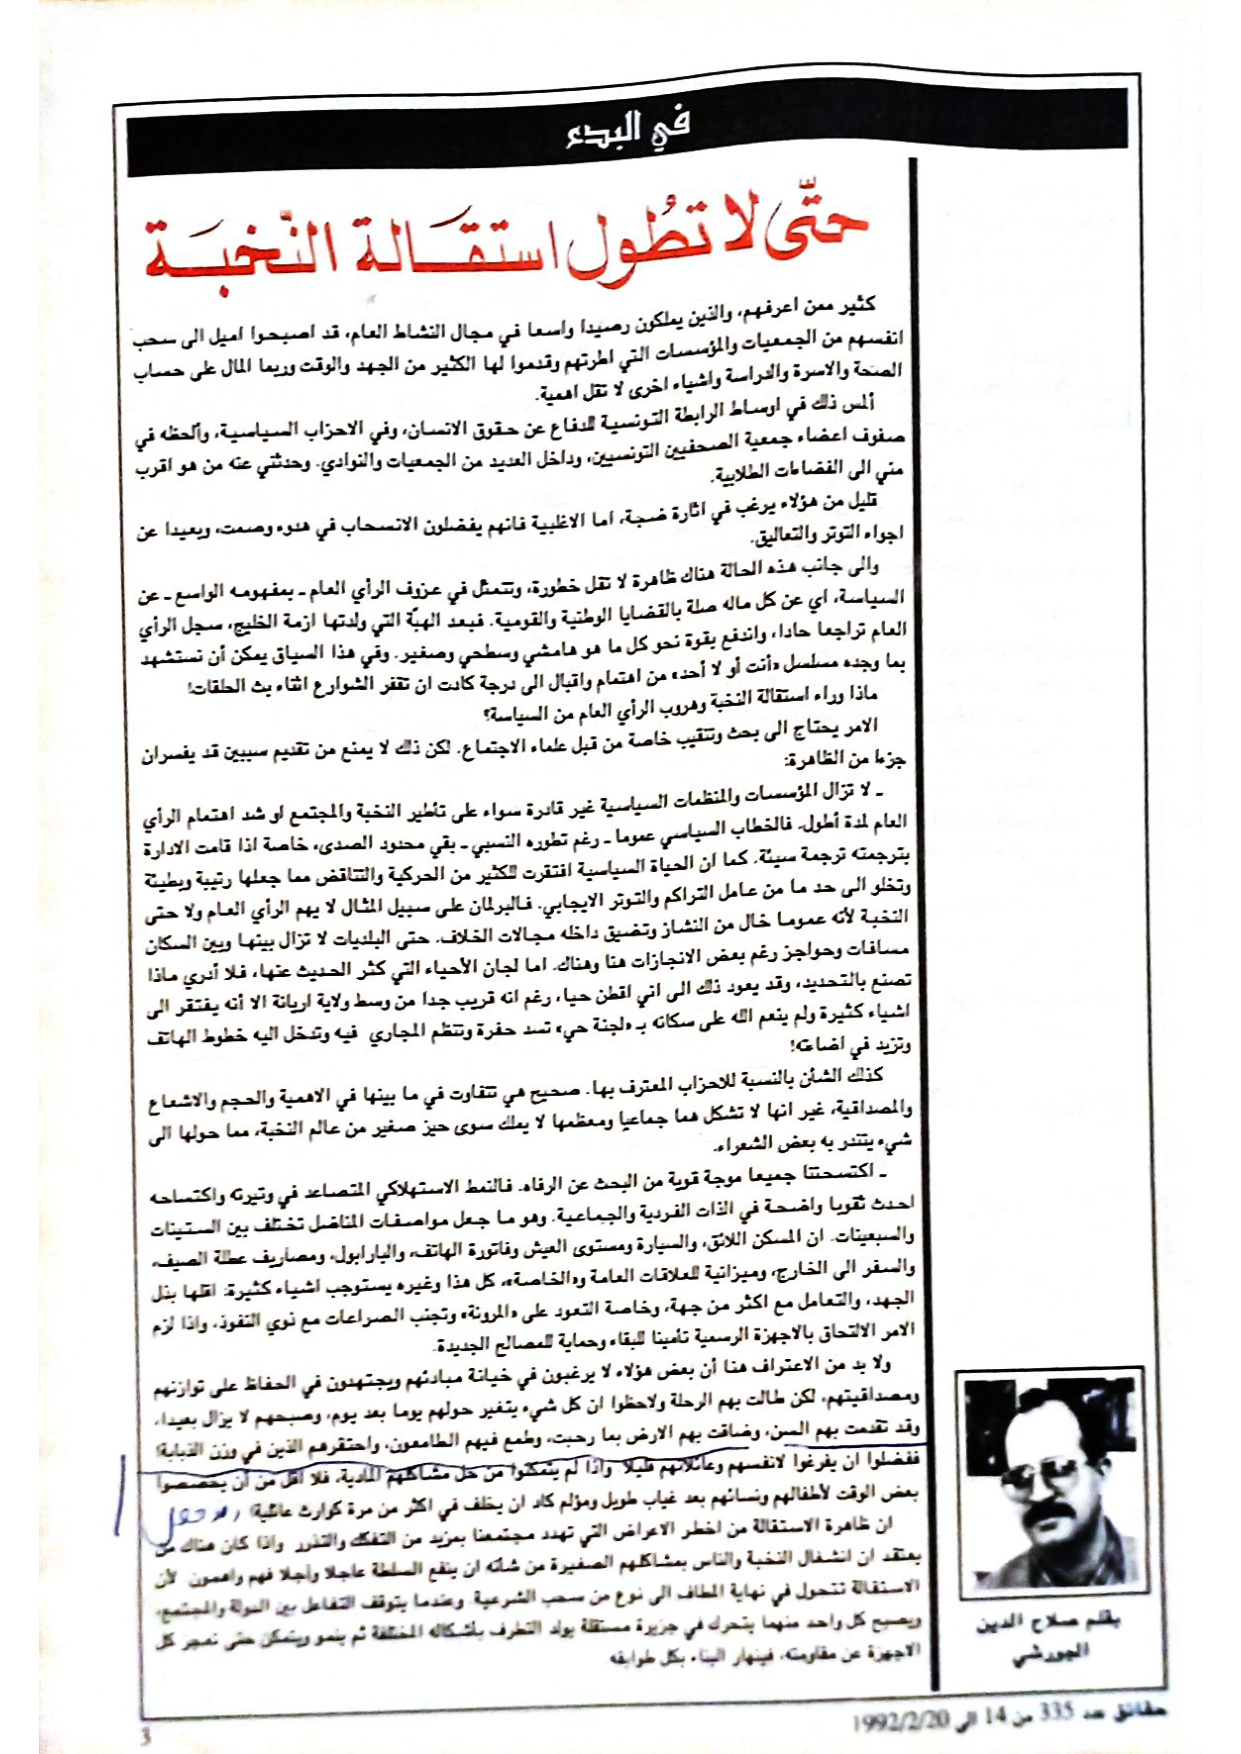 في البدء
حتّى لا تطُول استقَالة النّخبَة
كثير ممن اعرفهم، والذين يملكون رصيدا واسعا في مجال النشاط العام، قد اصبحوا اميل الى سحب
انفسهم من الجمعيات والمؤسسات التي اطرتهم وقدموا لها الكثير من الجهد والوقت وربما المال على حساب
الصحة والاسرة والدراسة واشياء اخرى لا تقل اهمية.
ألمس ذلك في اوساط الرابطة التونسية للدفاع عن حقوق الانسان، وفي الاحزاب السياسية، وألحظه في
صفوف اعضاء جمعية الصحفيين التونسيين، وداخل العديد من الجمعيات والنوادي. وحدثني عنه من هو اقرب
مني الى الفضاءات الطلابية.
قليل من هؤلاء يرغب في اثارة ضجة، اما الاغلبية فانهم يفضلون الانسحاب في هدوء وصمت، وبعيدا عن
اجواء التوتر والتعاليق.
والى جانب هذه الحالة هناك ظاهرة لا تقل خطورة، وتتمثل في عزوف الرأي العام ـ بمفهومه الواسع ـ عن
السياسة، اي عن كل ماله صلة بالقضايا الوطنية والقومية. فبعد الهبّة التي ولدتها ازمة الخليج، سجل الرأي
العام تراجعا حادا، واندفع بقوة نحو كل ما هو هامشي وسطحي وصغير. وفي هذا السياق يمكن أن نستشهد
بما وجده مسلسل «أنت أو لا أحد» من اهتمام واقبال الى درجة كادت ان تقفر الشوارع اثناء بث الحلقات!
ماذا وراء استقالة النخبة وهروب الرأي العام من السياسة؟
الامر يحتاج الى بحث وتنقيب خاصة من قبل علماء الاجتماع. لكن ذلك لا يمنع من تقديم سببين قد يفسران
جزءا من الظاهرة:
ـ لا تزال المؤسسات والمنظمات السياسية غير قادرة سواء على تأطير النخبة والمجتمع او شد اهتمام الرأي
العام لمدة أطول. فالخطاب السياسي عموما ـ رغم تطوره النسبي ـ بقي محدود الصدى، خاصة اذا قامت الادارة
بترجمته ترجمة سيئة. كما ان الحياة السياسية افتقرت للكثير من الحركية والتناقض مما جعلها رتيبة وبطيئة
وتخلو الى حد ما من عامل التراكم والتوتر الايجابي. فالبرلمان على سبيل المثال لا يهم الرأي العام ولا حتى
النخبة لأنه عموما خال من النشاز وتضيق داخله مجالات الخلاف. حتى البلديات لا تزال بينها وبين السكان
مسافات وحواجز رغم بعض الانجازات هنا وهناك. اما لجان الأحياء التي كثر الحديث عنها، فلا أدري ماذا
تصنع بالتحديد، وقد يعود ذلك الى اني اقطن حيا، رغم انه قريب جدا من وسط ولاية اريانة الا أنه يفتقر الى
اشياء كثيرة ولم ينعم الله على سكانه بـ «لجنة حي» تسد حفرة وتنظم المجاري فيه وتدخل اليه خطوط الهاتف
وتزيد في اضاءته!
كذلك الشأن بالنسبة للاحزاب المعترف بها. صحيح هي تتفاوت في ما بينها في الاهمية والحجم والاشعاع
والمصداقية، غير انها لا تشكل هما جماعيا ومعظمها لا يملك سوى حيز صغير من عالم النخبة، مما حولها الى
شيء يتندر به بعض الشعراء.
ـ اكتسحتنا جميعا موجة قوية من البحث عن الرفاه. فالنمط الاستهلاكي المتصاعد في وتيرته واكتساحه
احدث ثقوبا واضحة في الذات الفردية والجماعية. وهو ما جعل مواصفات المناضل تختلف بين الستينات
والسبعينات. ان المسكن اللائق، والسيارة ومستوى العيش وفاتورة الهاتف، والبارابول، ومصاريف عطلة الصيف،
والسفر الى الخارج، وميزانية للعلاقات العامة و«الخاصة»، كل هذا وغيره يستوجب اشياء كثيرة: اقلها بذل
الجهد، والتعامل مع اكثر من جهة، وخاصة التعود على «المرونة» وتجنب الصراعات مع ذوي النفوذ، واذا لزم
الامر الالتحاق بالاجهزة الرسمية تأمينا للبقاء وحماية للمصالح الجديدة.
ولا بد من الاعتراف هنا أن بعض هؤلاء لا يرغبون في خيانة مبادئهم ويجتهدون في الحفاظ على توازنهم
ومصداقيتهم، لكن طالت بهم الرحلة ولاحظوا ان كل شيء يتغير حولهم يوما بعد يوم، وصبحهم لا يزال بعيدا،
وقد تقدمت بهم السن، وضاقت بهم الارض بما رحبت، وطمع فيهم الطامعون، واحتقرهم الذين في وزن الذبابة!
ففضلوا ان يفرغوا لانفسهم وعائلاتهم قليلا واذا لم يتمكنوا من حل مشاكلهم المادية، فلا اقل من أن يخصصوا
بعض الوقت لأطفالهم ونسائهم بعد غياب طويل ومؤلم كاد ان يخلف في اكثر من مرة كوارث عائلية!
ان ظاهرة الاستقالة من اخطر الاعراض التي تهدد مجتمعنا بمزيد من التفكك والتذرر واذا كان هناك من
يعتقد ان انشغال النخبة والناس بمشاكلهم الصغيرة من شأنه ان ينفع السلطة عاجلا وآجلا فهم واهمون لأن
الاستقالة تتحول في نهاية المطاف الى نوع من سحب الشرعية وعندما يتوقف التفاعل بين الدولة والمجتمع،
ويصبح كل واحد منهما يتحرك في جزيرة مستقلة يولد التطرف بأشكاله المختلفة ثم ينمو ويتمكن حتى تعجز كل
الاجهزة عن مقاومته، فينهار البناء بكل طوابقه
بقلم صلاح الدين
الجورشي
حقائق عدد 335 من 14 الى 1992/2/20
3